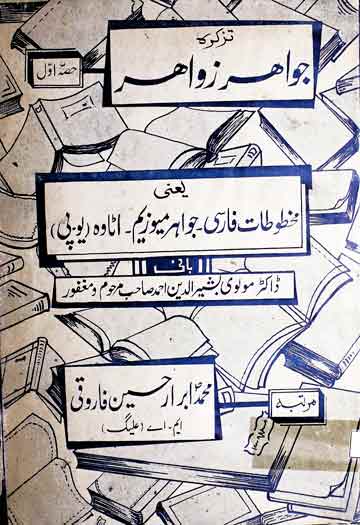 تذکرہ
جواہر زواہر
حصّہ اوّل
یعنی
مخطوطات فارسی - جواہر میوزیم - اٹاوہ (یو-پی)
بانی
ڈاکٹر مولوی بشیر الدین احمد صاحب مرحوم و مغفور
مرتبہ
محمد ابرار حسین فاروقی
ایم - اے (علیگ)